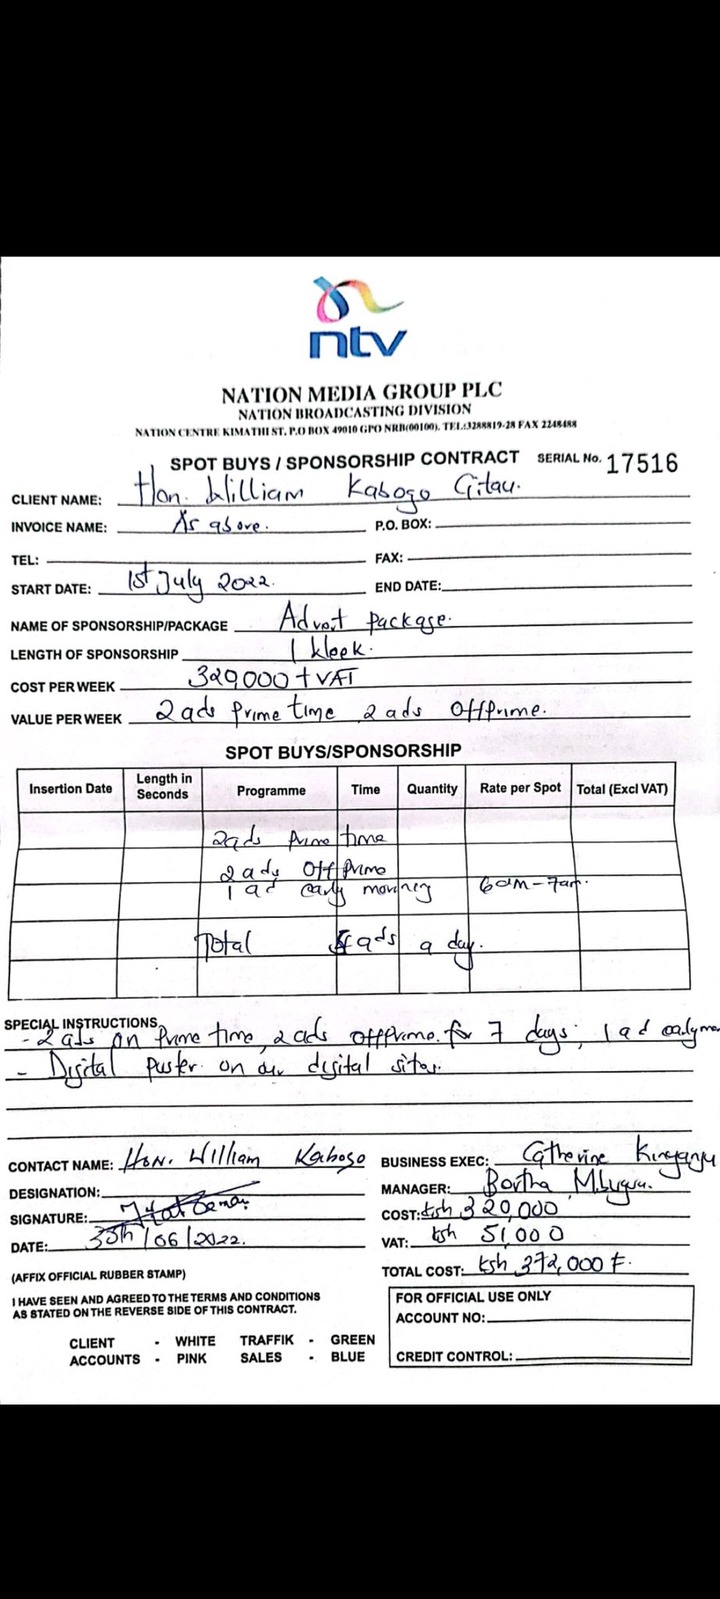 ntv
NATION MEDIA GROUP PLC
NATION BROADCASTING DIVISION
NATION CENTRE KIMATHI ST. P.O BOX 49010 GPO NRB(00100). TEL:3288819-28 FAX 2248488
SPOT BUYS / SPONSORSHIP CONTRACT SERIAL No. 17516
CLIENT NAME: Hon. William Kabogo Gitau.
INVOICE NAME: As above. P.O. BOX:
TEL: FAX:
START DATE: 1st July 2022. END DATE:
NAME OF SPONSORSHIP/PACKAGE Advert package.
LENGTH OF SPONSORSHIP 1 Week.
COST PER WEEK 320,000 + VAT
VALUE PER WEEK 2 ads prime time 2 ads offprime.
SPOT BUYS/SPONSORSHIP
Insertion Date Length in Seconds Programme Time Quantity Rate per Spot Total (Excl VAT)
2 ads prime time
2 ads Off prime
1 ad early morning 6am - 7am.
Total ads a day.
SPECIAL INSTRUCTIONS
- 2 ads on prime time, 2 ads offprime for 7 days; 1 ad early mor
- Digital poster on our digital sites.
CONTACT NAME: Hon. William Kabogo BUSINESS EXEC: Catherine
DESIGNATION: MANAGER:
SIGNATURE: COST: Ksh 320,000
DATE: 30th/06/2022. VAT: Ksh 51,000
(AFFIX OFFICIAL RUBBER STAMP) TOTAL COST: Ksh 372,000
I HAVE SEEN AND AGREED TO THE TERMS AND CONDITIONS
AS STATED ON THE REVERSE SIDE OF THIS CONTRACT.
FOR OFFICIAL USE ONLY
ACCOUNT NO:
CREDIT CONTROL:
CLIENT - WHITE TRAFFIK - GREEN
ACCOUNTS - PINK SALES - BLUE